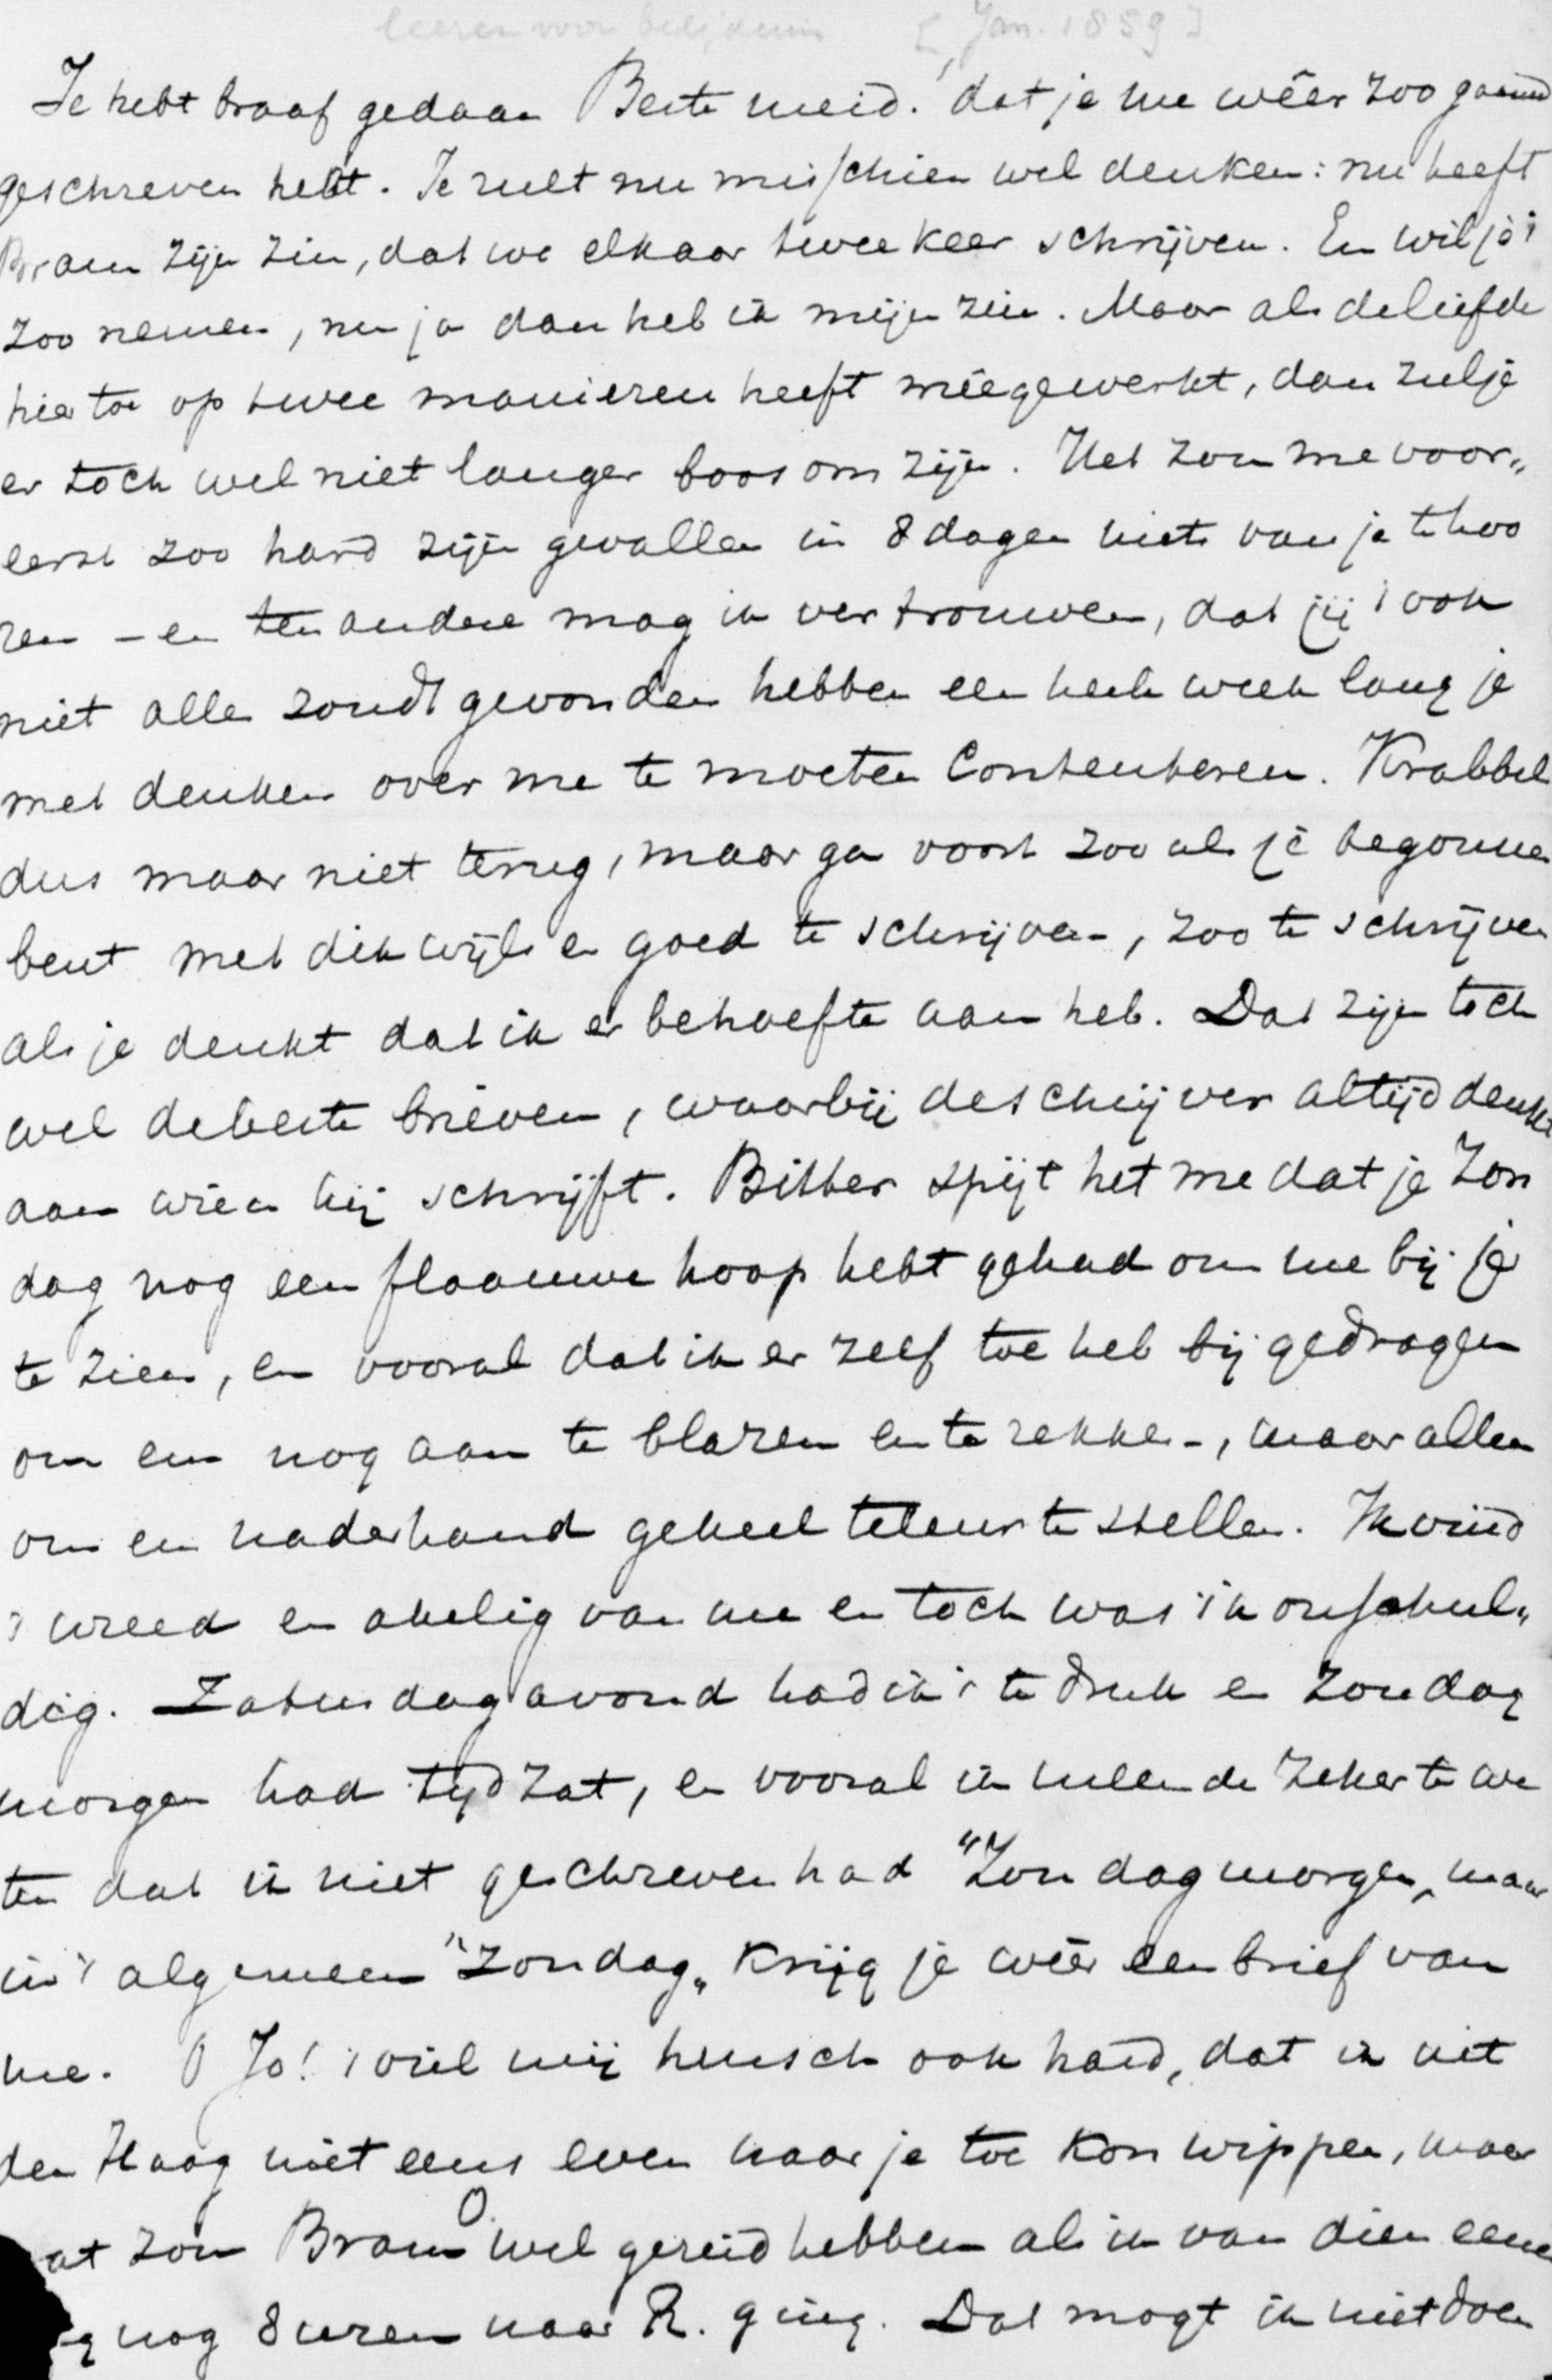 leeren voor belijdenis [Jan. 1859]
Je hebt braaf gedaan Beste meid! dat je me wêer zoo gaauw
geschreven hebt. Je zult nu misschien wel denken: nu heeft
Bram zijn zin, dat we elkaar twee keer schrijven. En wil je 't
zoo nemen, nu ja dan heb ik mijn zin. Maar als de liefde
hiertoe op twee manieren heeft mêegewerkt, dan zul je
er toch wel niet langer boos om zijn. Het zou me voor„
eerst zoo hard zijn gevallen in 8 dagen niets van je te hoo
ren – en ten andere mag ik vertrouwen, dat jij 't ook
niet alles zoudt gevonden hebben een heele week lang je
met denken over me te moeten contenteren. Krabbel
dus maar niet terug, maar ga voort zooals je begonnen
bent met dikwijls en goed te schrijven, zoo te schrijven
als je denkt dat ik er behoefte aan heb. Dat zijn toch
wel de beste brieven, waarbij de schrijver altijd denkt
aan wien hij schrijft. Bitter spijt het me dat je Zon
dag nog een flaauwe hoop hebt gehad om me bij je
te zien, en vooral dat ik er zelf toe heb bijgedragen
om em nog aan te blazen en te rekken, maar alleen
om em naderhand geheel teleur te stellen. Ik vind
't wreed en akelig van me en toch was ik onschul„
dig. Zaturdagavond had ik 't te druk en Zondag
morgen had tijd zat, en vooral ik meende zeker te we
ten dat ik niet geschreven had "Zondagmorgen„ maar
in 't algemeen "Zondag„ krijg je wêer een brief van
me. O Jo! 't viel mij heusch ook hard, dat ik uit
den Haag niet eens even naar je toe kon wippen, maar
at zou Bram O. wel gezeid hebben als ik van dien eenen
g nog 8 uren naar R. ging. Dat mogt ik niet doen